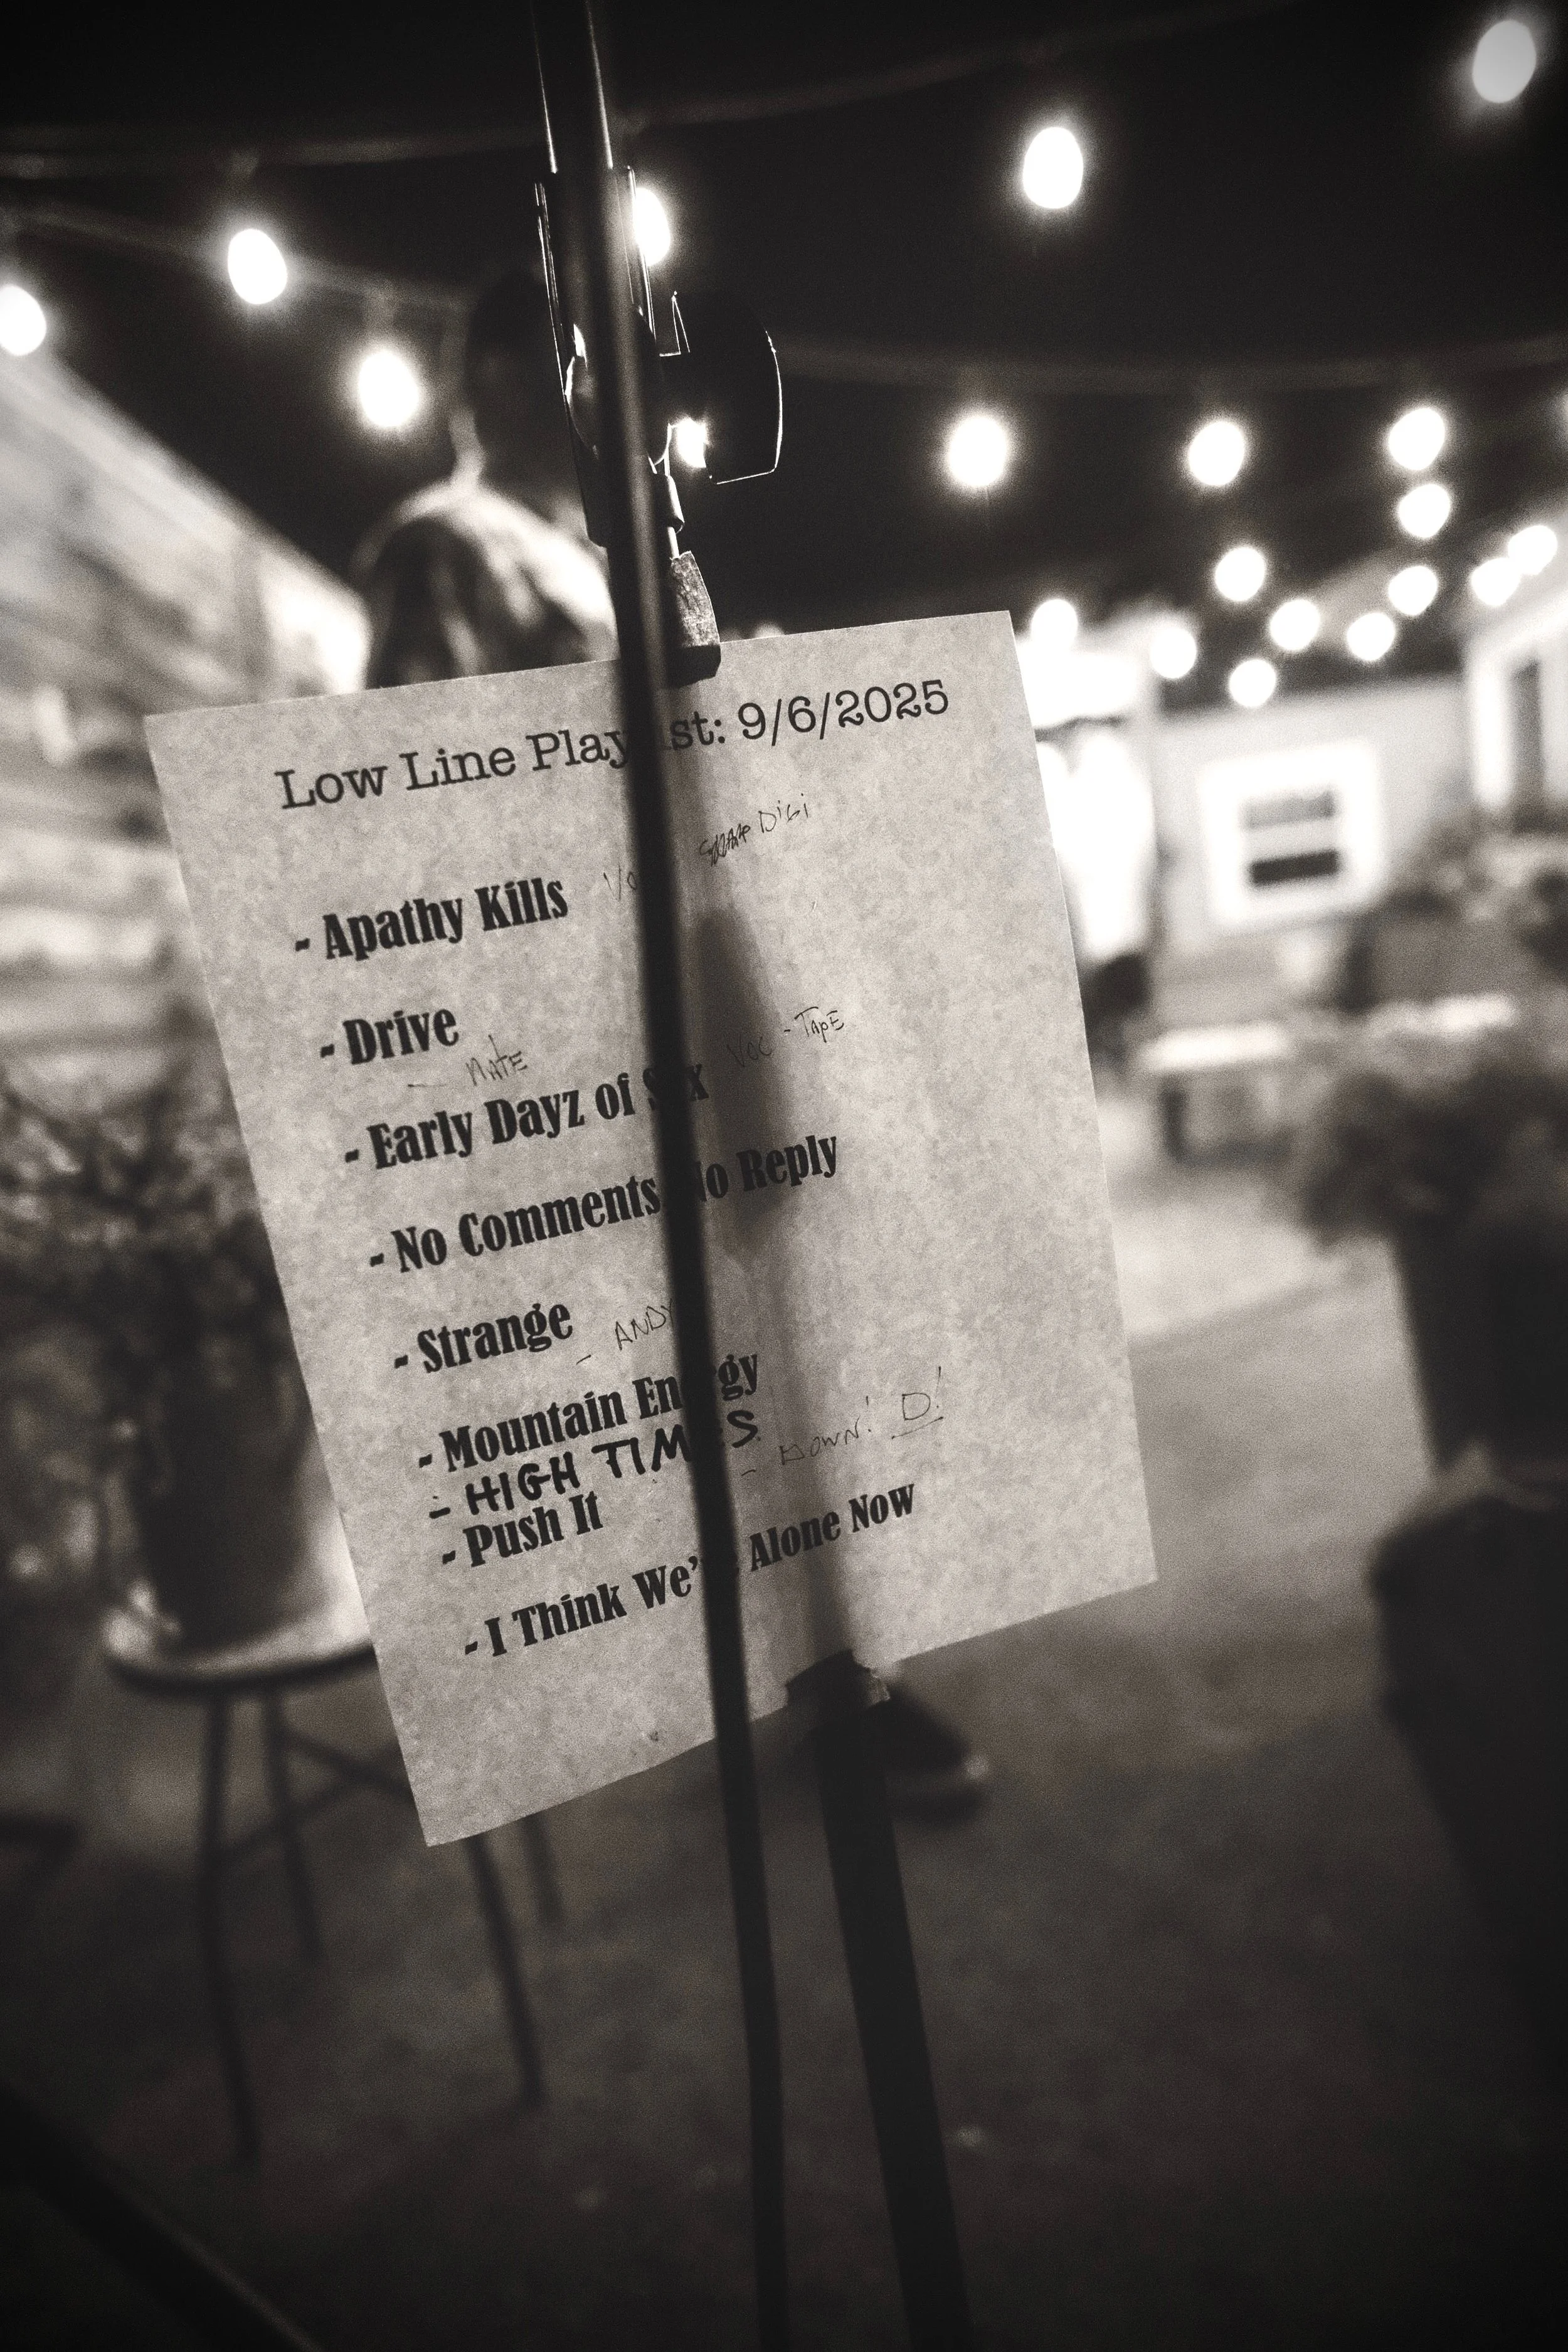 Low Line Playlist: 9/6/2025
Digi
- Apathy Kills
- Drive
- NATE
- TAPE
- Early Dayz of Six VOC
- No Comments No Reply
- Strange
- ANDY
- Mountain Energy
- HIGH TIMES
- DOWN! D!
- Push It
- I Think We're Alone Now